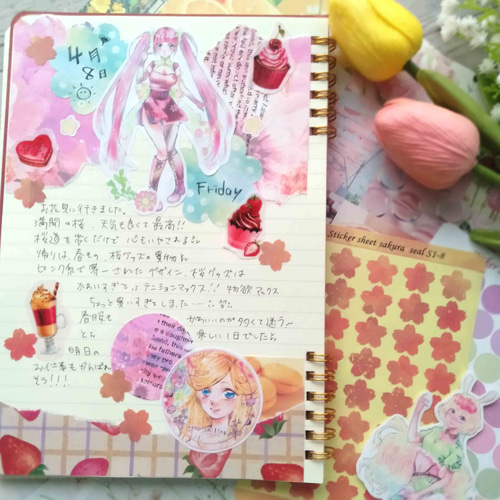 4月
8日
Friday
お花見に行きました。
満開の桜、天気も良くて最高!!
桜道を歩くだけで心もいやされるね
帰りは、春もの、桜グッズの買物へ
ピンク系で統一されたデザイン、桜グッズは
かわいすぎて、テンションマックス!! 物欲マックス
ちょっと買いすぎてしまった…
春服も かわいいのが多くて迷う〜
とお 楽しい1日でしたね
明日の
お仕事もがんばれ
そう!!!
Sticker sheet sakura seal S1-8